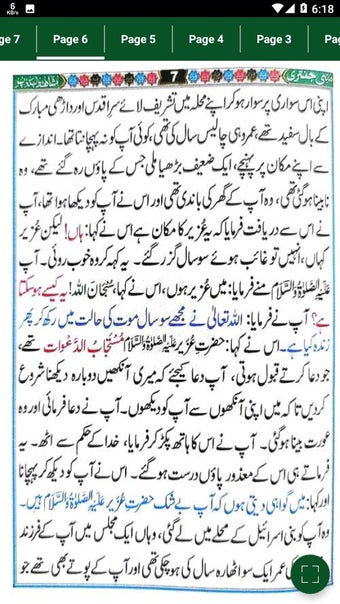 6 KB/s 6:18
ge 7 Page 6 Page 5 Page 4 Page 3 Pa
7
اپنی اس سواری پر سوار ہو کر اپنے محلہ میں تشریف لائے سرِ اقدس اور داڑھی مبارک
کے بال سفید تھے، عمر وہی چالیس سال کی تھی، کوئی آپ کو نہ پہچانتا تھا۔ اندازے
سے اپنے مکان پر پہنچے، ایک ضعیف بڑھیا ملی جس کے پاؤں رہ گئے تھے، وہ
نابینا ہوگئی تھی، وہ آپ کے گھر کی باندی تھی اور اس نے آپ کو دیکھا ہوا تھا، آپ
نے اس سے دریافت فرمایا کہ یہ عُزیر کا مکان ہے اس نے کہا: ہاں! لیکن عُزیر
کہاں، انہیں تو غائب ہوئے سو سال گزر گئے۔ یہ کہہ کر وہ خوب روئی۔ آپ
عَلَیْہِ الصَّلٰوۃُ وَالسَّلَام نے فرمایا: میں عُزیر ہوں، اس نے کہا، سُبْحَانَ اللہ! یہ کیسے ہوسکتا
ہے؟ آپ نے فرمایا: اللہ تعالیٰ نے مجھے سو سال موت کی حالت میں رکھ کر پھر
زندہ کیا ہے۔ اس نے کہا: حضرتِ عُزیر عَلَیْہِ الصَّلٰوۃُ وَالسَّلَام مُسْتَجَابُ الدَّعْوَات تھے،
جو دعا کرتے قبول ہوتی، آپ دعا کیجئے کہ میری آنکھیں دوبارہ دیکھنا شروع
کردیں تاکہ میں اپنی آنکھوں سے آپ کو دیکھوں۔ آپ نے دعا فرمائی اور وہ
عورت بینا ہوگئی۔ آپ نے اس کا ہاتھ پکڑ کر فرمایا، خدا کے حکم سے اٹھ۔ یہ
فرماتے ہی اس کے معذور پاؤں درست ہوگئے۔ اس نے آپ کو دیکھ کر پہچانا
اور کہا: میں گواہی دیتی ہوں کہ آپ بے شک حضرتِ عُزیر عَلَیْہِ الصَّلٰوۃُ وَالسَّلَام ہیں۔
وہ آپ کو بنی اسرائیل کے محلے میں لے گئی، وہاں ایک مجلس میں آپ کے فرزند
کی عمر ایک سو اٹھارہ سال کی ہوچکی تھی اور آپ کے پوتے بھی تھے جو